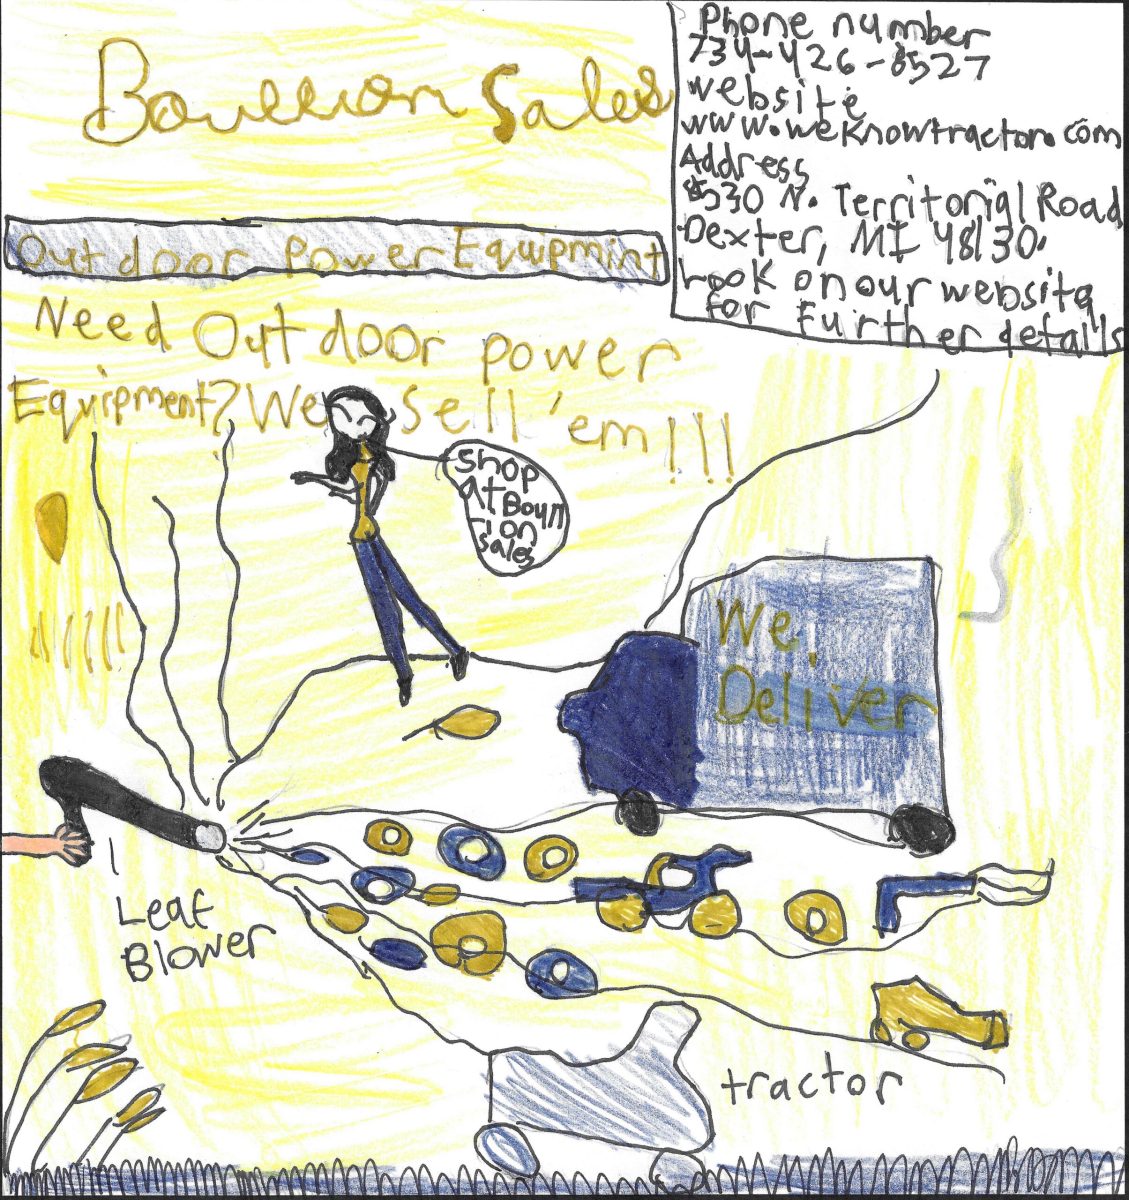 Boullion Sales
Phone number
734-426-8527
website
www.weknowtractor.com
Address
8530 N. Territorial Road
Dexter, MI 48130.
Look on our website
for Fuirther details
Outdoor Power Equipmint
Need Outdoor power
Equipment? We sell 'em!!!
Shop
at Boull
ion
sales
We
Deliver
Leaf
Blower
tractor